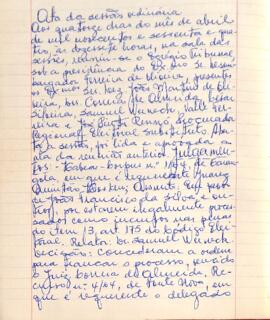 Ata da sessão ordinária
Aos quatorze dias do mês de abril
de mil novecentos e sessenta e quatro,
às dezesseis horas, na sala das
sessões, reuniu-se o Egrégio Tribunal
sob a presidência do Ex Sr Desem-
bargador Ferreira de Oliveira, presentes
os Srs. Juiz João Martins de Oli-
veira, Correia de Almeida, Cesar
Silveira, Samuel Wunsch,
e José Pinto Renzó, Procurador
Regional Eleitoral Substituto. Aber-
ta a sessão, foi lida e aprovada a
ata da reunião anterior. Julgamen-
tos: Habeas-corpus nº de Caran-
gola, em que é requerente Juarez
Quintão Hosken, Em favor
de João Francisco da Silva e ou-
tros, por estarem ilegalmente proces-
sados como incursos nas penas
do item 13, art 175 do Código Elei-
toral. Relator: Dr Samuel Wunsch
Decisão: Concederam a ordem
para trancar o processo, vencido
o Juiz Correia de Almeida. Re-
curso nº 4/64, de Ponte Nova, em
que é requerente o delegado